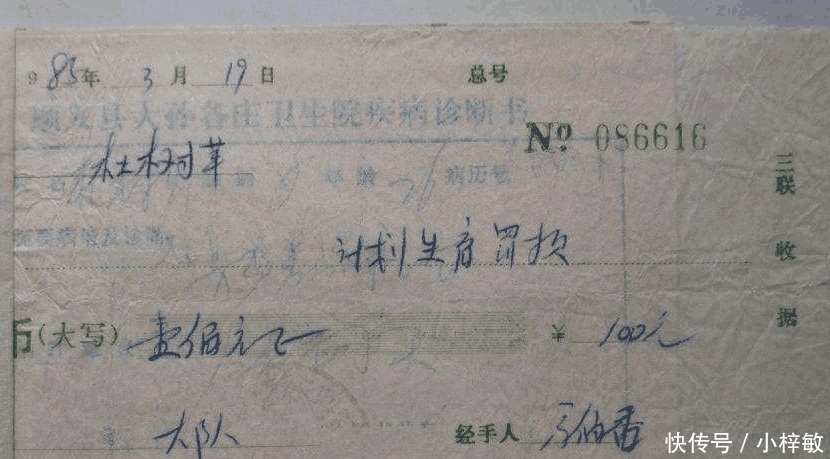 985年 3月 19日 总号
顺义县大孙各庄卫生院疾病诊断书
No 086616
杜树苹
年龄 病历号
计划生育罚款
三联收据
币(大写) 壹佰元正 ¥ 100元
大队 经手人
快传号 / 小梓敏